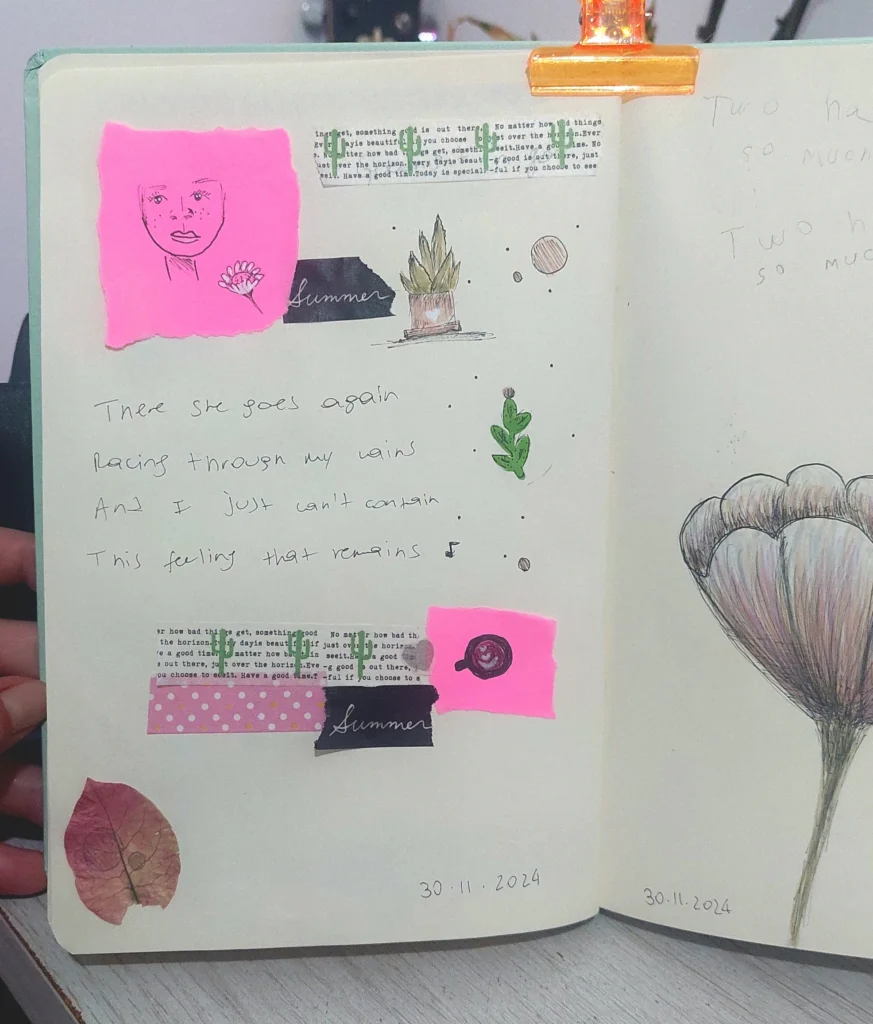 ing get, something is out there No matter how things
dayie beautif you choose just over the Ever
matter how bad get, someth seeit.Have a good time. No
just over the horizon. very dayie g good is out there, just
seeit. Have a good time.Today is special -ful if you choose to see
Summer
There she goes again
Racing through my vains
And I just can't contain
This feeling that remains
er how bad things get, something good No matter how bad th
the horizon.Every dayie beautiful if just over the horizon.
a good time. matter how in seeit.Have a good
s out there, just over the horizon.Eve -g good is out there,
ou choose to seeit. Have a good time.T -ful if you choose to s
Summer
30.11.2024
Two ha
so much
Two h
so muc
30.11.2024